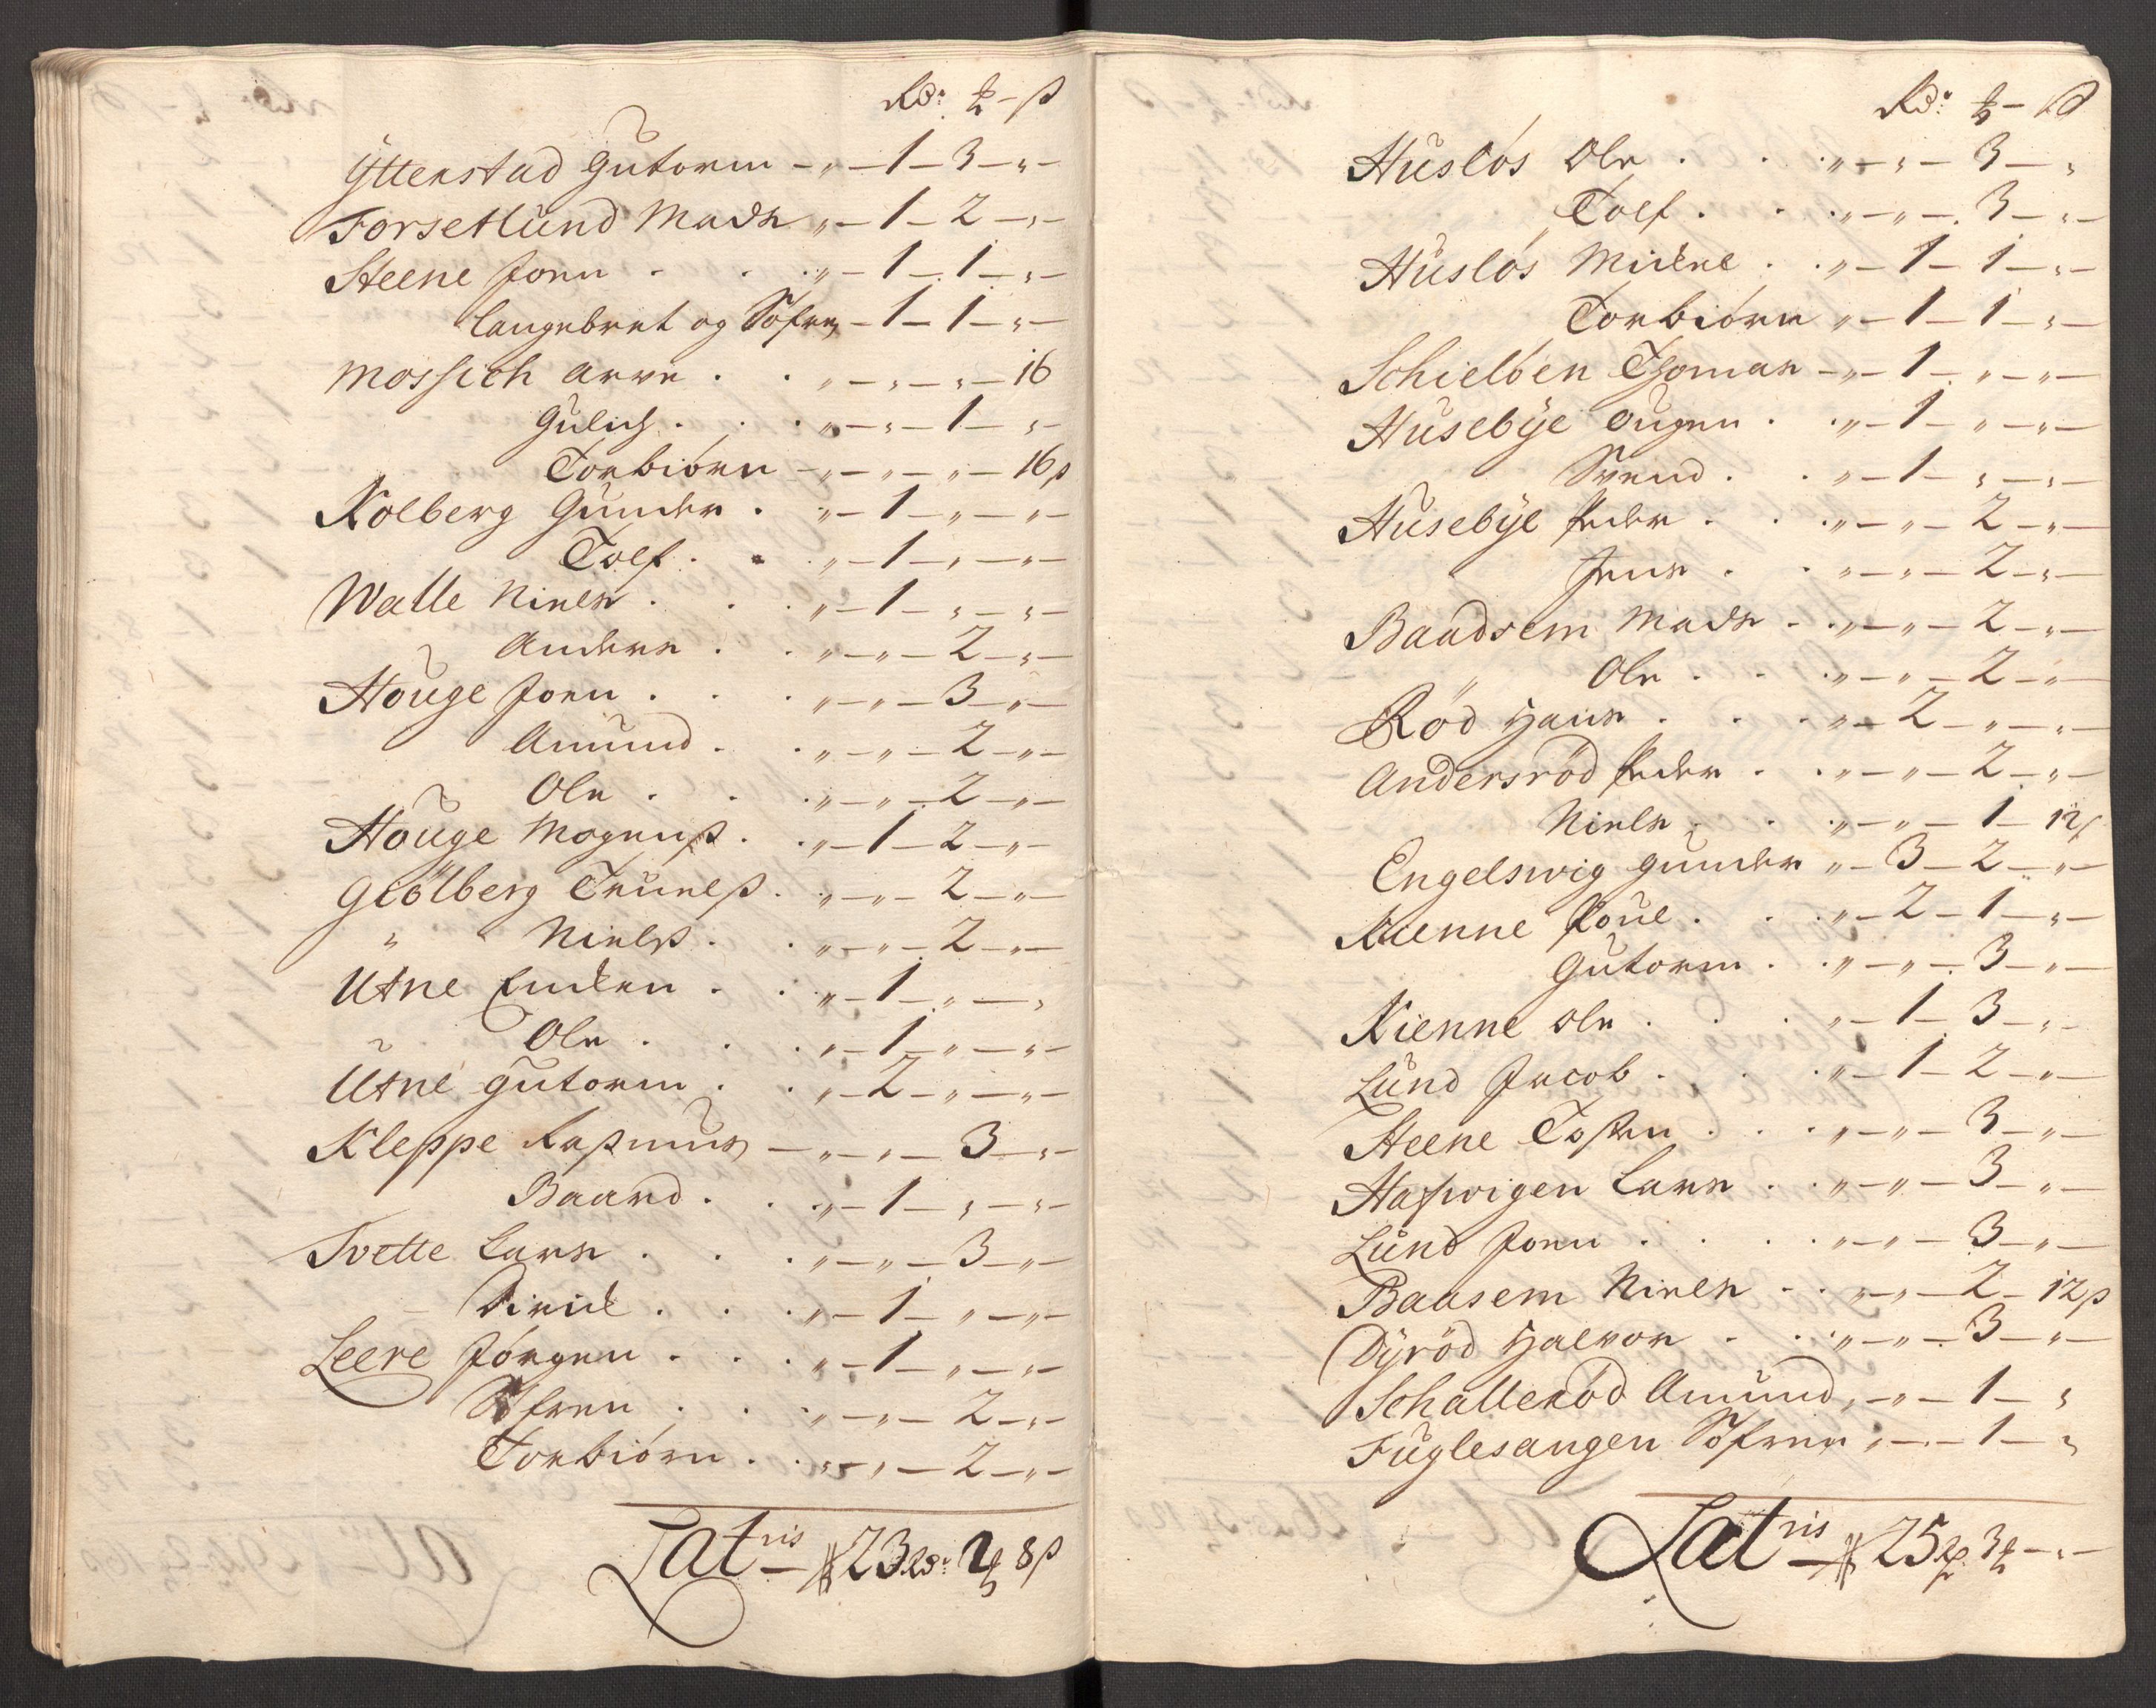 Rd: ₰ – ß
Ÿttenstad Gutorm – „ – 1 – 3 – „ –
Forsetlund Mads „ – 1 – 2 – „ –
Steene Joen . . . „ – 1 – 1 – „ –
Langebret og Søfren – 1 – 1 – „ –
Mossich Arve . . „ – „ – „ – 16
Gulich . . . „ – „ – 1 – „ –
Torbiørn – „ – „ – „ – 16 ß
Kolberg Gunder . „ – 1 – „ – „ –
Tolf . . . „ – 1 – „ – „ –
Walle Niels . . . „ – 1 – „ – „ –
Anders . . „ – „ – 2 – „ –
Houge Joen . . . „ – „ – 3 – „ –
Amund . . „ – „ – 2 – „ –
Ole . . . „ – „ – 2 – „ –
Houge Mognuß . . „ – 1 – 2 – „ –
Giölberg Truelß . „ – „ – 2 – „ –
„ „ Nielß . . „ – „ – 2 – „ –
Utne Enders . . „ – 1 – „ – „
Ole . . . „ – 1 – „ – „ –
Utne Gutorm . . „ – 2 – „ – „ –
Kleppe Raßmus – „ – „ – 3 – „ –
Baard . . . „ – 1 – „ – „ –
Tvette Lars . . . „ – „ – 3 – „ –
Didrich . . . „ – 1 – „ – „ –
Leere Jørgen . . . „ – 1 – „ – „ –
Søfren . . . „ – „ – 2 – „ –
Torbiørn . . „ – „ – 2 – „ –
Lat:ris – 23 Rd: 2 ₰ 8 ß
Rd: ₰ – ß
Husløs Ole . . . „ – „ – 3 – „
Tolf . . . „ – „ – 3 – „ –
Husløs Michel . . „ – 1 – 1 – „ –
Torbiørn „ – 1 – 1 – „ –
Schieløen Thomas – „ – 1 – „ – „ –
Husebÿe Ougen . . „ – 1 – „ – „ –
Svend . . „ – 1 – „ – „ –
Husebÿe Peder . . . „ – „ – 2 – „ –
Jens . . „ – „ – 2 – „ –
Baadsem Mads . . „ – „ – 2 – „ –
„ Ole . . . „ – „ – 2 – „ –
Röd Hans . . . „ – 2 – „ – „ –
Andersröd Peder . . „ – „ – 2 – „ –
Niels . . . „ – „ – 1 – 12 ß
Engelswig Gunder „ – 3 – 2 – „ –
Kienne Poul . . . „ – 2 – 1 – „ –
Gutorm . . „ – „ – 3 – „ –
Kienne Ole . . . „ – 1 – 3 – „ –
Lund Jacob . . . „ – 1 – 2 – „ –
Steene Tosten . . . „ – „ – 3 – „ –
Hafwigen Lars . . „ – „ – 3 – „ –
Lund Joen . . . . „ – „ – 3 – „ –
Baasem Niels . . „ – „ – 2 – 12 ß
Dÿröd Halvor . . „ – „ – 3 – „ –
Schalleröd Amund „ – „ – 1 – „
Fuglesangen Søfren „ – „ – 1 – „
Lat:ris – 25 Rd. 3 ₰ – „ –